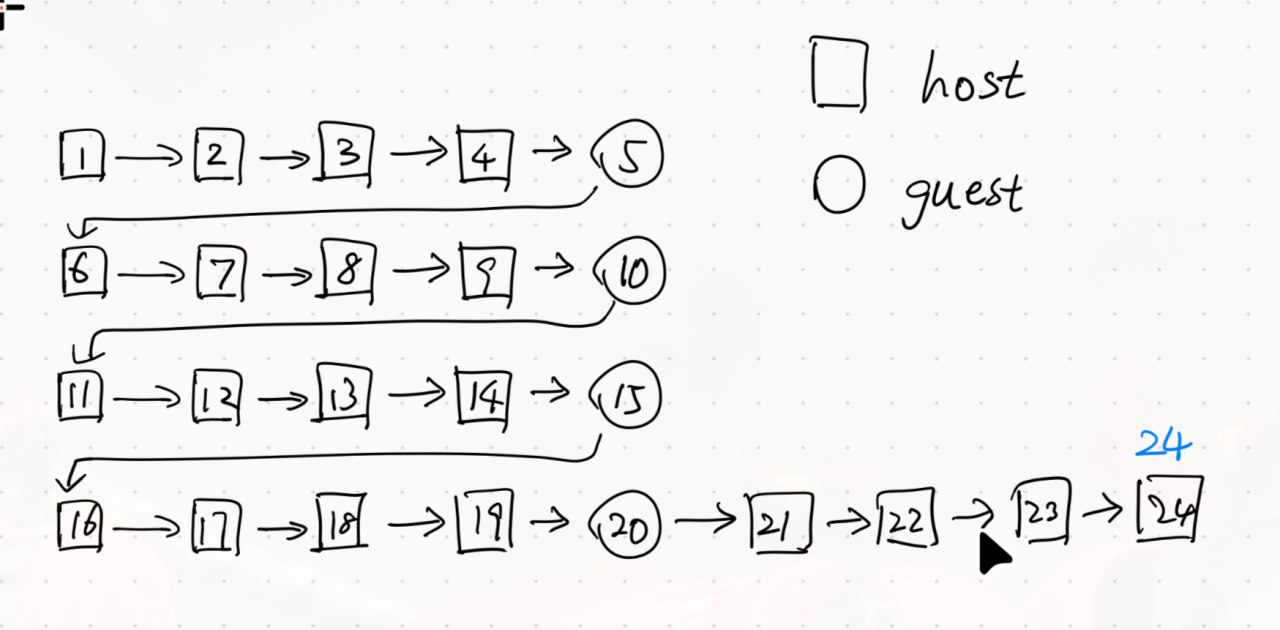 host
guest
1 2 3 4 5
6 7 8 9 10
11 12 13 14 15
24
16 17 18 19 20 21 22 23 24